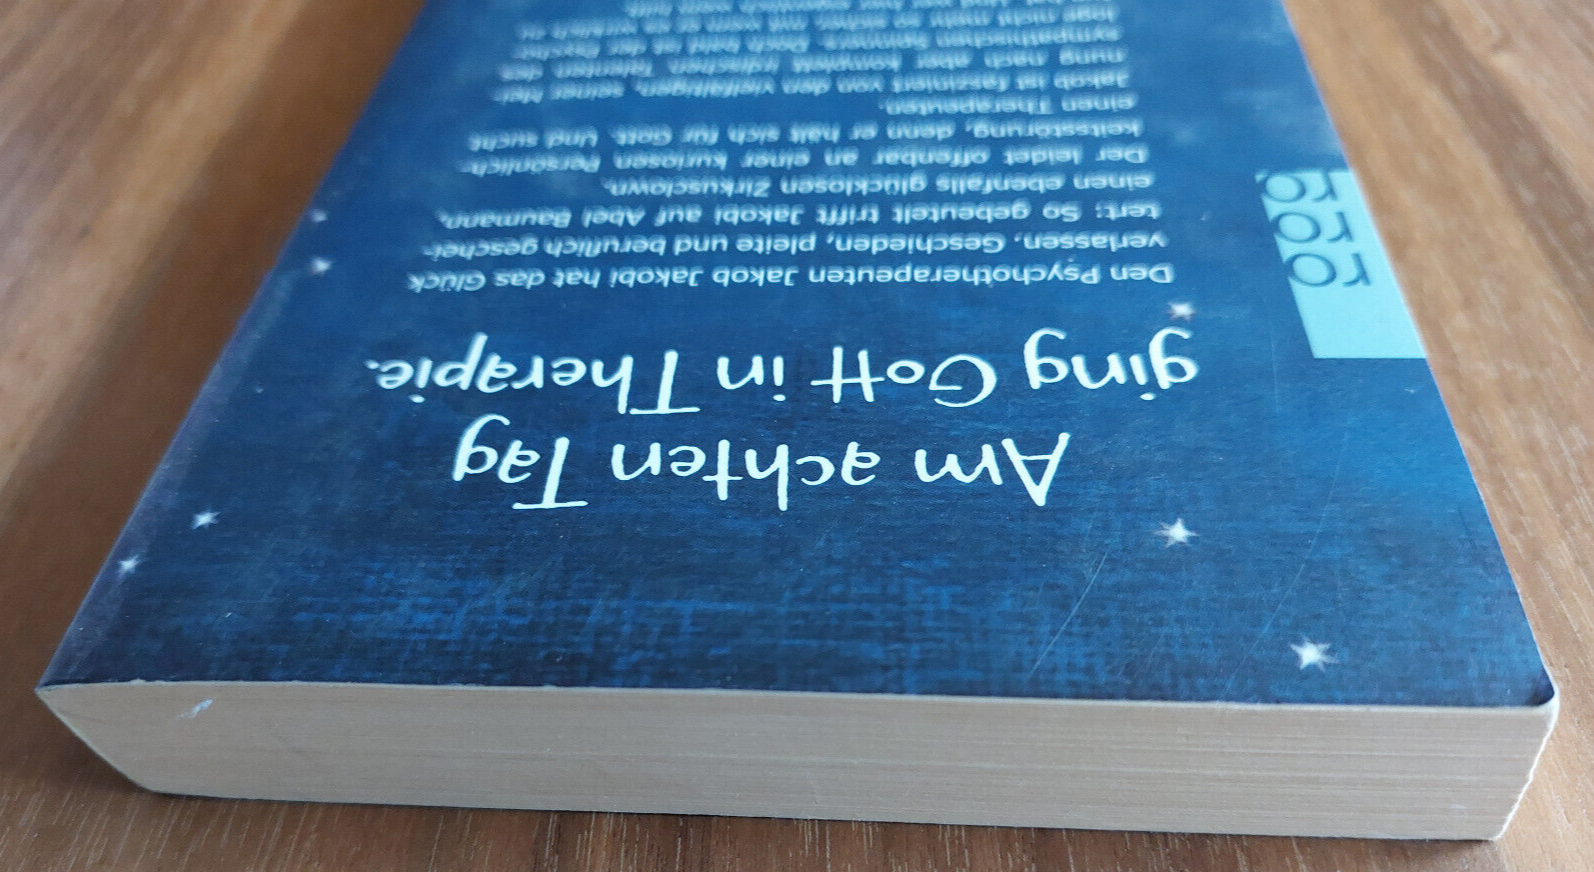 Am achten Tag
ging Gott in Therapie.
Den Psychotherapeuten Jakob Jakobi hat das Glück
verlassen. Geschieden, pleite und beruflich geschei-
tert: So gebeutelt trifft Jakobi auf Abel Baumann,
einen ebenfalls glücklosen Zirkusclown.
Der leidet offenbar an einer kuriosen Persönlich-
keitsstörung, denn er hält sich für Gott. Und sucht
einen Therapeuten.
Jakob ist fasziniert von den vielfältigen, seiner Mei-
nung nach aber komplett irdischen Talenten des
sympathischen Spinners. Doch bald ist der Psycho-
loge nicht mehr so sicher, mit wem er es wirklich zu
ro
ro
ro